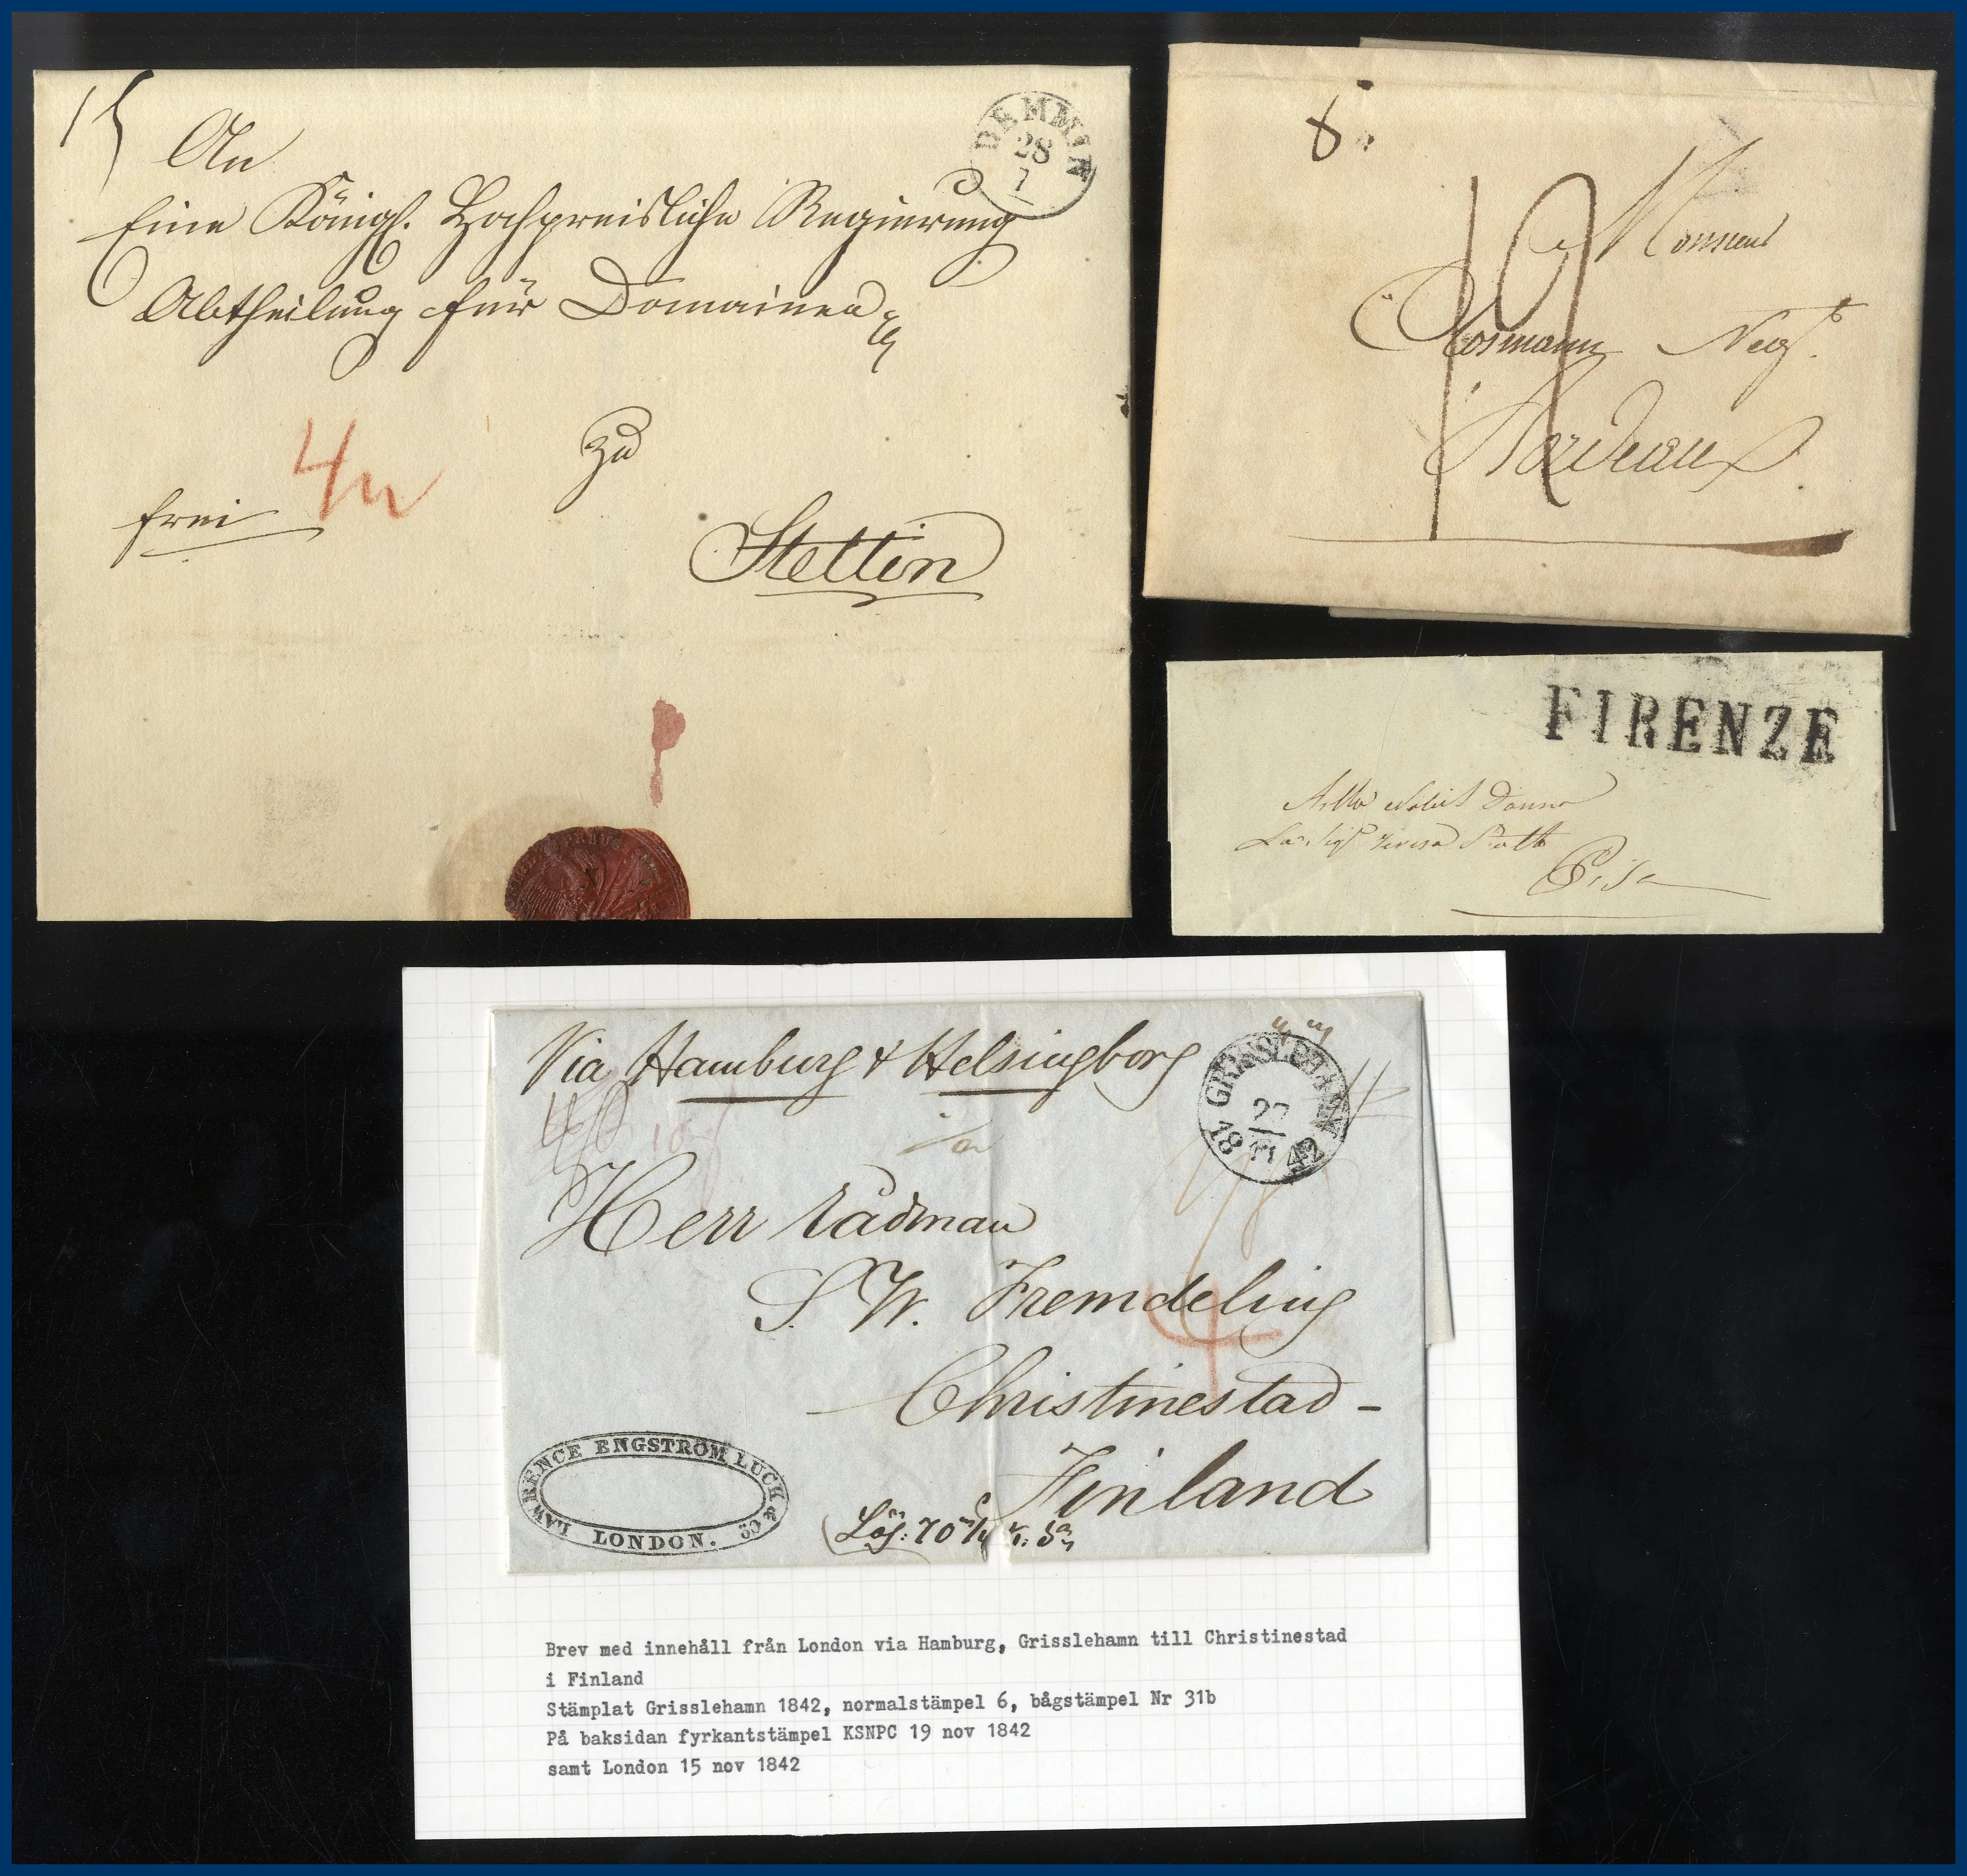 15
An
DEMMIN
28
1
Eine Königl. Hochpreisliche Regierung
Abtheilung für Domainen
4
zu
frei
Stettin
8
19
Monsieur
Négt.
Bordeaux
FIRENZE
Nobil Donna
La Sigra Teresa
Pisa
Via Hamburg & Helsingborg
GRISSLEHAMN
27
11
1842
Herr Rådman
S. W. Fremdeling
4
Christinestad -
Finland
LAWRENCE ENGSTRÖM LUCK & Co
LONDON.
Brev med innehåll från London via Hamburg, Grisslehamn till Christinestad
i Finland
Stämplat Grisslehamn 1842, normalstämpel 6, bågstämpel Nr 31b
På baksidan fyrkantstämpel KSNPC 19 nov 1842
samt London 15 nov 1842